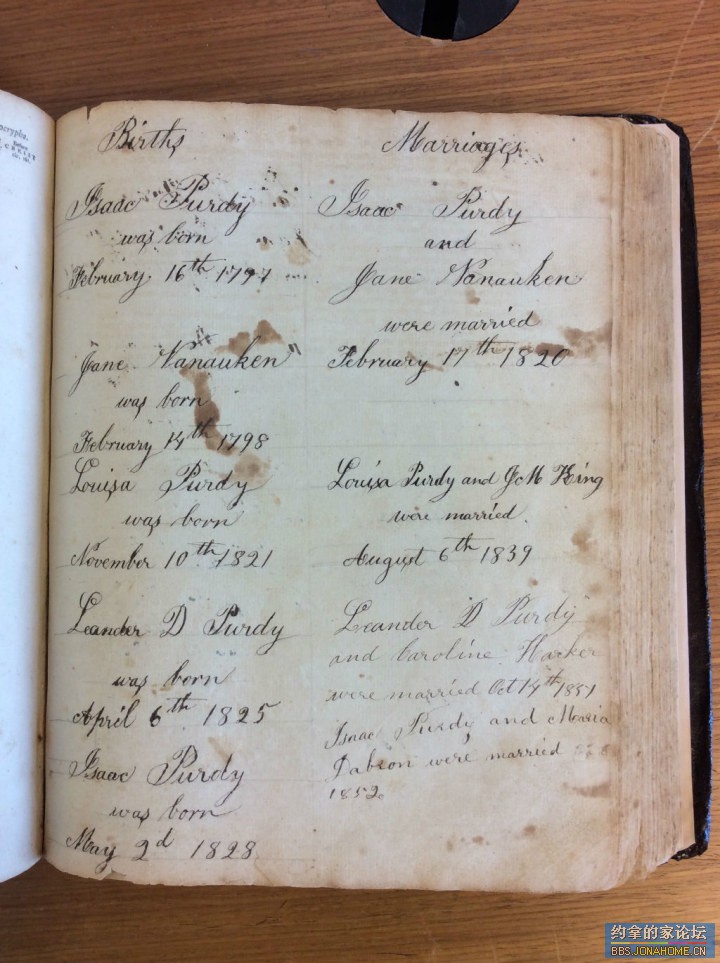 Births
Isaac Purdy
was born
February 16th 1797
Jane Vanauken
was born
February 14th 1798
Louisa Purdy
was born
November 10th 1821
Leander D Purdy
was born
April 6th 1825
Isaac Purdy
was born
May 2d 1828
Marriages
Isaac Purdy
and
Jane Vanauken
were married
February 17th 1820
Louisa Purdy and J M King
were married
August 6th 1839
Leander D Purdy
and Caroline Harker
were married Oct 14th 1851
Isaac Purdy and Maria
were married
1852
约拿的家论坛
BBS.JONAHOME.CN